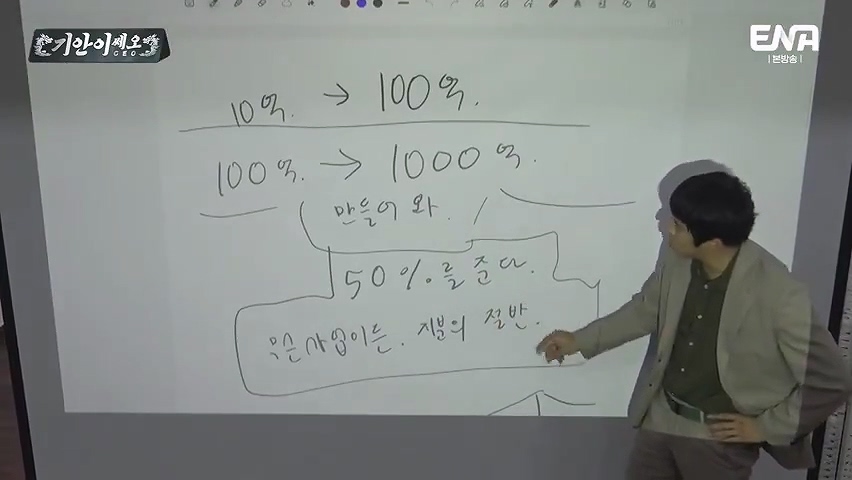 기안이쎄오
CEO
ENA
| 본방송 |
10억. → 100억.
100억. → 1000억.
만들어 와.
50%를 준다.
무슨 사업이든. 지분의 절반.